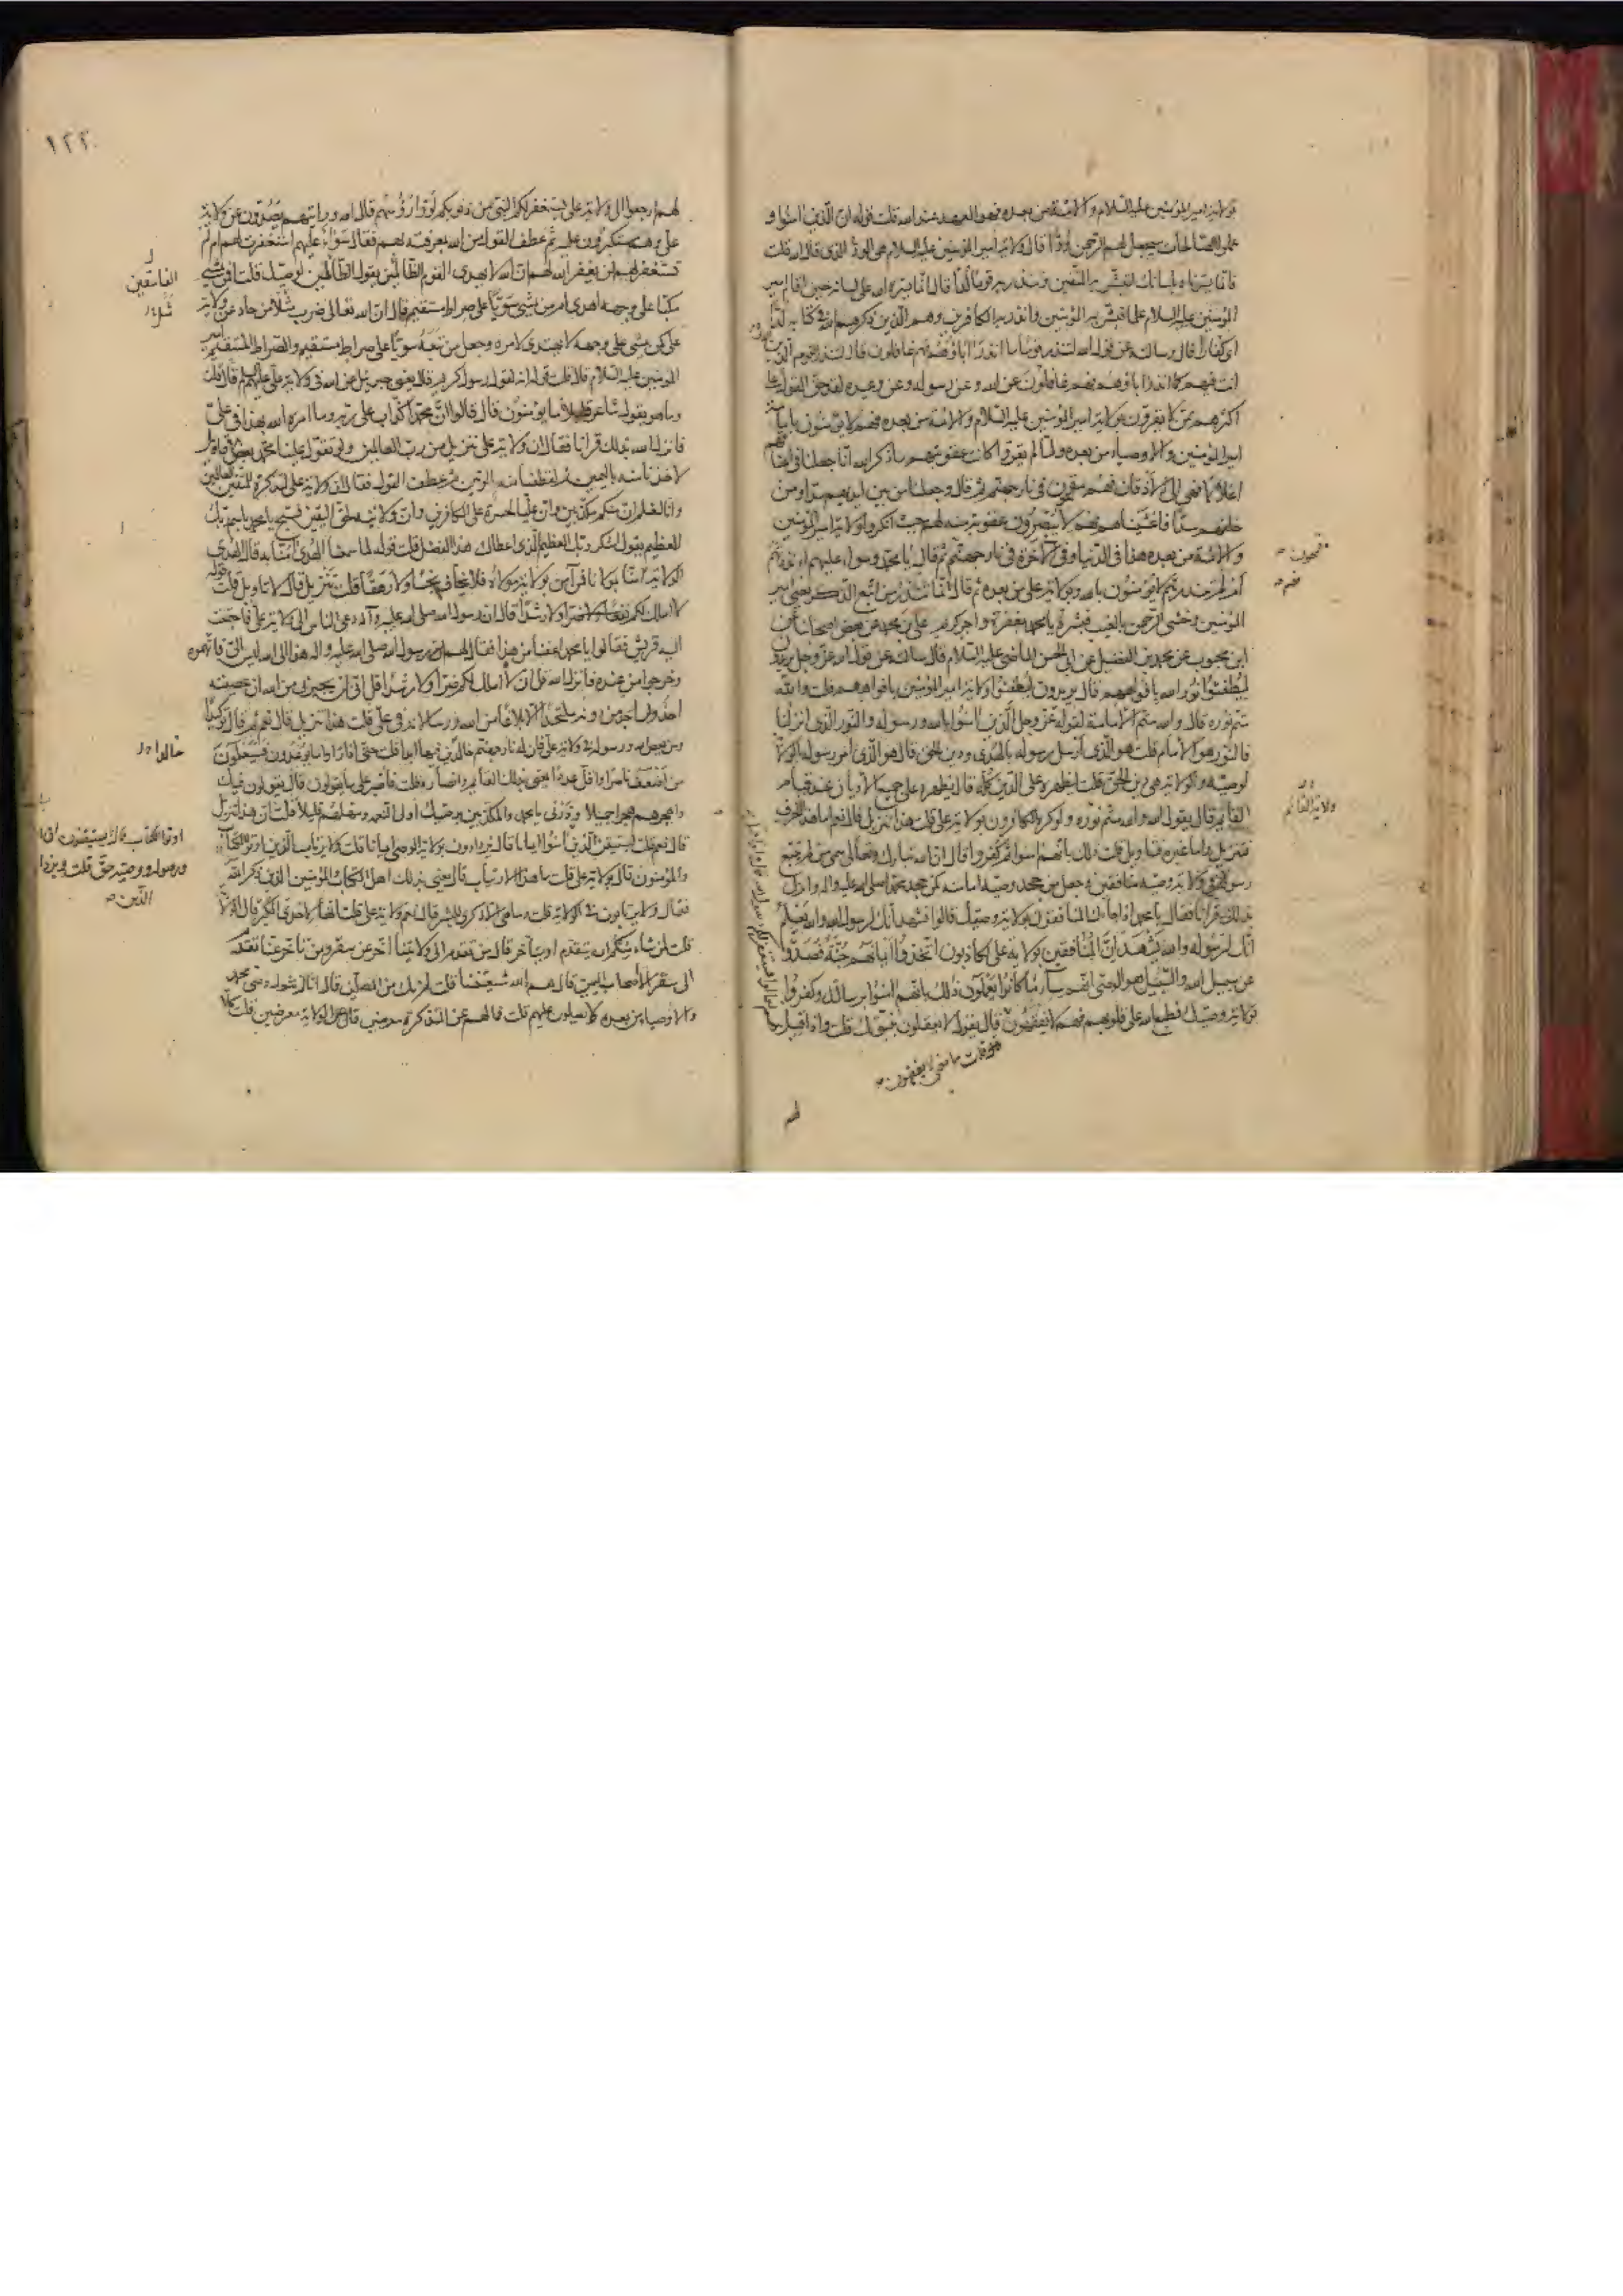 بولاية امير المؤمنين عليه السلام والائمة من بعده فهو العهد عند الله قلت قوله ان الذين امنوا و
عملوا الصالحات سيجعل لهم الرحمن ودا قال ولاية امير المؤمنين عليه السلام هي الود الذي قال الله قلت
فانما يسرناه بلسانك لتبشر به المتقين وتنذر به قوما لدا قال انما يسره الله على لسانه حين اقام امير
المؤمنين عليه السلام علما فبشر به المؤمنين وانذر به الكافرين وهم الذين ذكرهم الله في كتابه لدا
اي كفارا قال وسالته عن قول الله لتنذر قوما ما انذر اباؤهم فهم غافلون قال لتنذر القوم الذين
انت فيهم كما انذر اباؤهم فهم غافلون عن الله وعن رسوله وعن وعيده لقد حق القول على
اكثرهم ممن لا يقرون بولاية امير المؤمنين عليه السلام والائمة من بعده فهم لا يؤمنون بامامة
امير المؤمنين والاوصياء من بعده فلما لم يقروا كانت عقوبتهم ما ذكر الله انا جعلنا في اعناقهم
اغلالا فهي الى الاذقان فهم مقمحون في نار جهنم ثم قال وجعلنا من بين ايديهم سدا ومن
خلفهم سدا فاغشيناهم فهم لا يبصرون عقوبة منه لهم حيث انكروا ولاية امير المؤمنين
والائمة من بعده هذا في الدنيا وفي الاخرة في نار جهنم ثم قال يا محمد وسواء عليهم ءانذرتهم
ام لم تنذرهم لا يؤمنون بالله وبولاية علي من بعده ثم قال انما تنذر من اتبع الذكر يعني امير
المؤمنين وخشي الرحمن بالغيب فبشره يا محمد بمغفرة واجر كريم علي بن محمد عن بعض اصحابنا عن
ابن محبوب عن محمد بن الفضيل عن ابي الحسن الماضي عليه السلام قال سالته عن قول الله عز وجل يريدون
ليطفئوا نور الله بافواههم قال يريدون ليطفئوا ولاية امير المؤمنين بافواههم قلت والله
متم نوره قال والله متم الامامة لقوله عز وجل الذين امنوا بالله ورسوله والنور الذي انزلنا
فالنور هو الامام قلت هو الذي ارسل رسوله بالهدى ودين الحق قال هو الذي امر رسوله بالولاية
لوصيه والولاية هي دين الحق قلت ليظهره على الدين كله قال يظهره على جميع الاديان عند قيام
القايم قال يقول الله والله متم نوره ولو كره الكافرون بولاية علي قلت هذا تنزيل قال نعم اما هذا الحرف
فتنزيل واما غيره فتاويل قلت ذلك بانهم امنوا ثم كفروا قال ان الله تبارك وتعالى سمى من لم يتبع
رسوله في ولاية وصيه منافقين وجعل من جحد وصيه امامته كمن جحد محمدا صلى الله عليه واله وانزل
بذلك قرانا فقال يا محمد اذا جاءك المنافقون بولاية وصيك قالوا نشهد انك لرسول الله والله يعلم
انك لرسوله والله يشهد ان المنافقين بولاية علي لكاذبون اتخذوا ايمانهم جنة فصدوا
عن سبيل الله والسبيل هو الوصي انهم ساء ما كانوا يعملون ذلك بانهم امنوا برسالتك وكفروا
بولاية وصيك فطبع الله على قلوبهم فهم لا يفقهون قال يقول لا يعقلون بنبوتك قلت واذا قيل
قلت ما معنى لا يفقهون
لهم
مقمحون
فهم
ولاية القائم
١٢٢
لهم ارجعوا الى ولاية علي يستغفر لكم النبي من ذنوبكم لووا رؤسهم قال الله ورايتهم يصدون عن ولاية
علي وهم مستكبرون عليه ثم عطف القول من الله بمعرفته بهم فقال سواء عليهم استغفرت لهم ام لم
تستغفر لهم لن يغفر الله لهم ان الله لا يهدي القوم الظالمين يقول الظالمين لوصيك قلت افمن يمشي
مكبا على وجهه اهدى امن يمشي سويا على صراط مستقيم قال ان الله تعالى ضرب مثلا من حاد عن ولاية
علي كمن يمشي على وجهه لا يهتدي لامره وجعل من تبعه سويا على صراط مستقيم والصراط المستقيم امير
المؤمنين عليه السلام قال قلت قوله انه لقول رسول كريم قال يعني جبرئيل عن الله في ولاية علي عليه السلم قال قلت
وما هو بقول شاعر قليلا ما يؤمنون قال قالوا ان محمدا كذاب على ربه وما امره الله بهذا في علي
فانزل الله بذلك قرانا فقال ان ولاية علي تنزيل من رب العالمين ولو تقول علينا محمد بعض الاقاويل
لاخذنا منه باليمين ثم لقطعنا منه الوتين ثم عطف القول فقال ان ولاية علي لتذكرة للمتقين للعالمين
وانا لنعلم ان منكم مكذبين وان عليا لحسرة على الكافرين وان ولايته لحق اليقين فسبح يا محمد باسم ربك
العظيم يقول اشكر ربك العظيم الذي اعطاك هذا الفضل قلت قوله لما سمعنا الهدى امنا به قال الهدى
الولاية امنا بمولانا فمن آمن بولاية مولاه فلا يخاف بخسا ولا رهقا قلت تنزيل قال لا تاويل قلت قوله
لا املك لكم ضرا ولا رشدا قال ان رسول الله صلى الله عليه وآله دعى الناس الى ولاية علي فاجتمعت
اليه قريش فقالوا يا محمد اعفنا من هذا فقال لهم رسول الله صلى الله عليه واله هذا الى الله ليس الي فاتهموه
وخرجوا من عنده فانزل الله قل اني لا املك لكم ضرا ولا رشدا قل اني لن يجيرني من الله ان عصيته
احد ولن اجد من دونه ملتحدا الا بلاغا من الله ورسالاته في علي قلت هذا تنزيل قال نعم ثم قال توكيدا
ومن يعص الله ورسوله في ولاية علي فان له نار جهنم خالدين فيها ابدا قلت حتى اذا راوا ما يوعدون فسيعلمون
من اضعف ناصرا واقل عددا يعني بذلك القايم وانصاره قلت فاصبر على ما يقولون قال يقولون فيك
واهجرهم هجرا جميلا وذرني يا محمد والمكذبين بوصيك اولي النعمة ومهلهم قليلا قلت ان هذا تنزيل
قال نعم قلت ليستيقن الذين
ويزداد الذين امنوا ايمانا قال يزدادون بولاية الوصي ايمانا قلت ولا يرتاب الذين اوتوا الكتاب
والمؤمنون قال بولاية علي قلت ما هذا الارتياب قال يعني بذلك اهل الكتاب والمؤمنين الذين ذكر الله
فقال ولا يرتابون في الولاية قلت وما هي الا ذكرى للبشر قال نعم ولاية علي قلت انها لاحدى الكبر قال الولاية
قلت لمن شاء منكم ان يتقدم او يتاخر قال من تقدم الى ولايتنا اخر عن سقر ومن تاخر عنا تقدم
الى سقر الا اصحاب اليمين قال هم والله شيعتنا قلت لم نك من المصلين قال انا لم نتول وصي محمد
والاوصياء من بعده ولا يصلون عليهم قلت فما لهم عن التذكرة معرضين قال عن الولاية معرضين قلت كلا
الفاسقين
خالدا
اوتوا الكتاب قال يستيقنون ان الله
ورسوله ووصيه حق قلت ويزداد
الذين